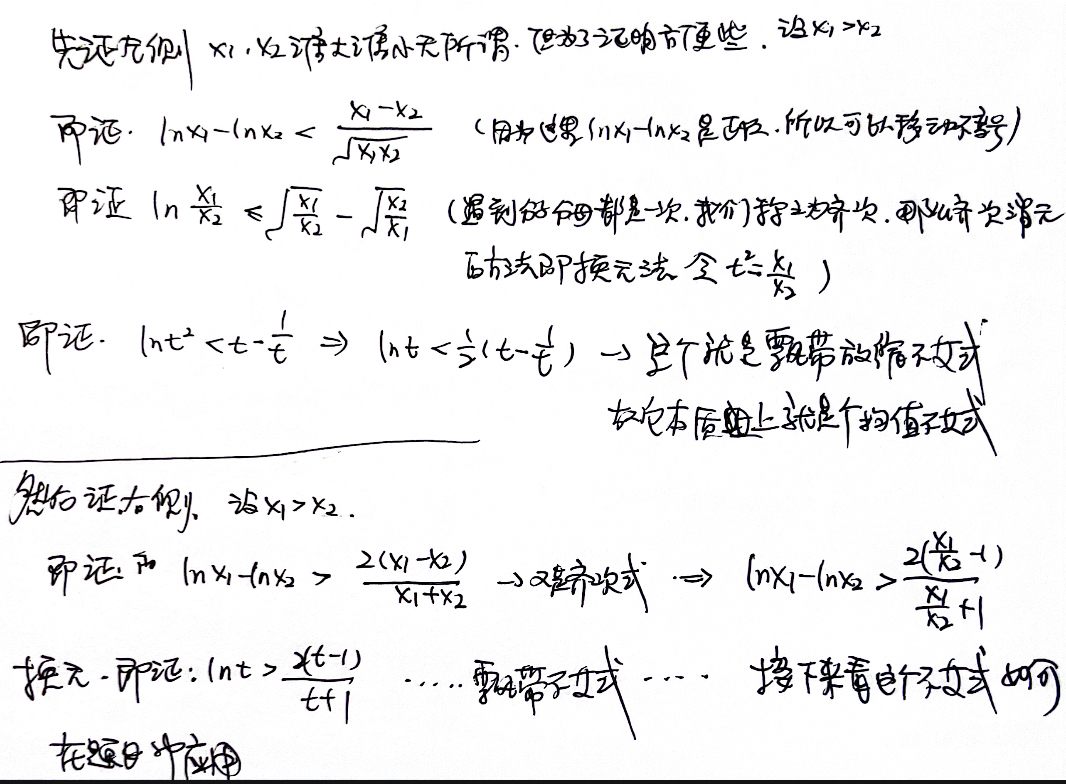 先证左侧 x₁, x₂谁大谁小无所谓. 但为了证明方便些. 设x₁>x₂
即证. lnx₁-lnx₂ < \frac{x₁-x₂}{\sqrt{x₁x₂}} (因为这里lnx₁-lnx₂是正的. 所以可以移动不等号)
即证 ln\frac{x₁}{x₂} ≤ \sqrt{\frac{x₁}{x₂}} - \sqrt{\frac{x₂}{x₁}} (遇到分子分母都是一次. 我们称之为齐次. 那么齐次消元
的方法即换元法 令 t²=\frac{x₁}{x₂})
即证. lnt² < t-\frac{1}{t} ⇒ lnt < \frac{1}{2}(t-\frac{1}{t}) → 这个就是飘带放缩不等式
故它本质上就是个均值不等式
然后证右侧. 设x₁>x₂.
即证: lnx₁-lnx₂ > \frac{2(x₁-x₂)}{x₁+x₂} → 又是齐次式 ⇒ lnx₁-lnx₂ > \frac{2(\frac{x₁}{x₂}-1)}{\frac{x₁}{x₂}+1}
换元. 即证: lnt > \frac{2(t-1)}{t+1} ····· 飘带不等式 ···· 接下来看这个不等式如何
在题目中应用